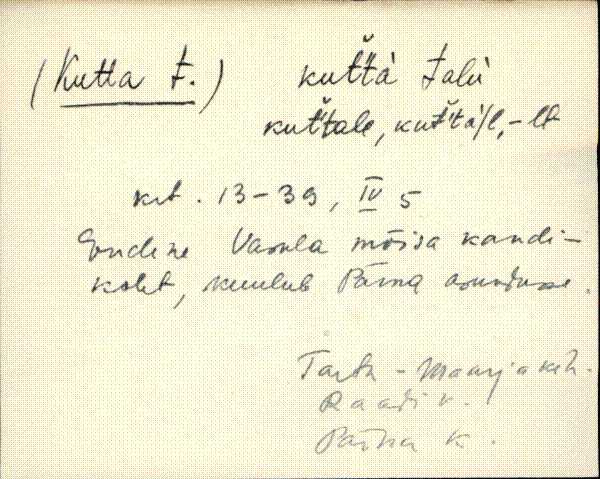 (Kutta t.) kut̆t̆à talù
kut̆t̆ale, kut̆t̆à/l, -lt
krt. 13-39, IV 5
Endine Vasula mõisa kandi-
koht, kuulub Pärna asundusse.
Tartu-Maarja khk.
Raadi v.
Pärna k.